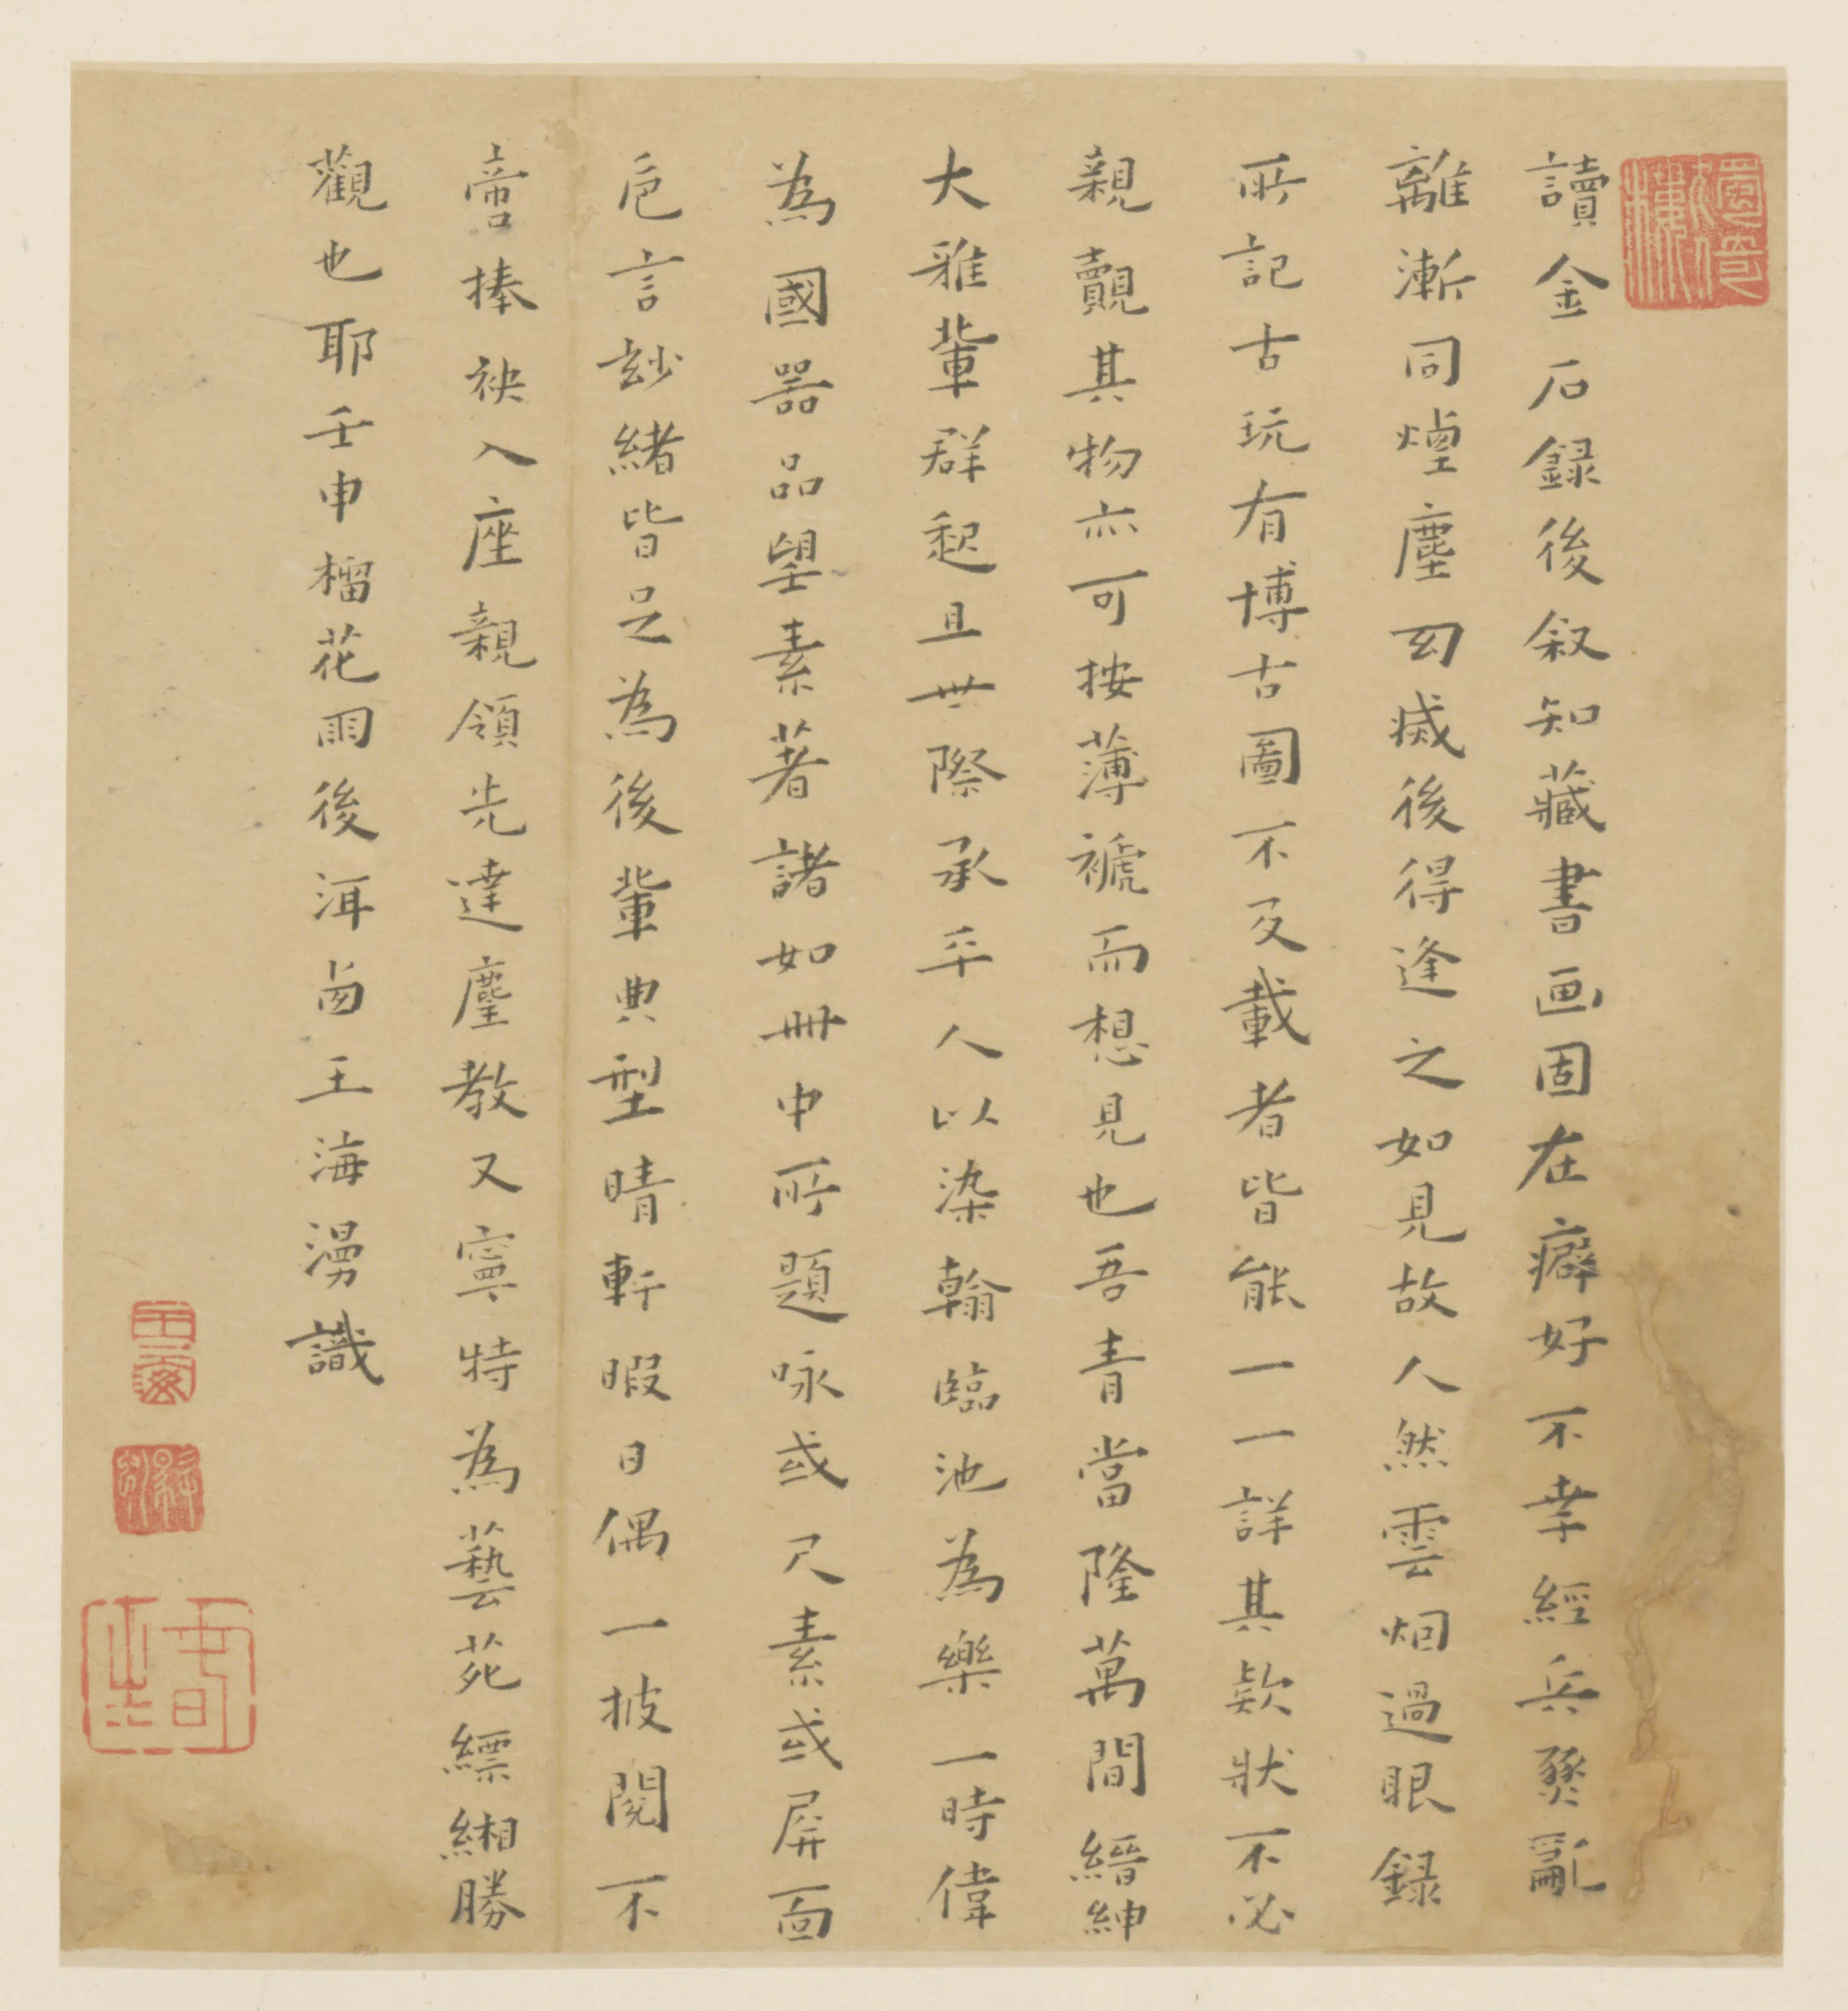 讀金石録後叙知藏書画固在癖好不幸經兵燹亂
離漸同煙塵幻滅後得逢之如見故人然雲烟過眼録
所記古玩有博古圖不及載者皆能一一詳其款狀不必
親覿其物亦可按薄褫而想見也吾青當隆萬間縉紳
大雅輩群起且世際承平人以染翰臨池為樂一時偉
為國器品望素著諸如冊中所題咏或尺素或屏面
巵言玅緒皆足為後輩典型晴軒暇日偶一披閱不
啻捧袂入座親領先達麈教又寧特為藝苑縹緗勝
觀也耶壬申榴花雨後洱卣王海湧識